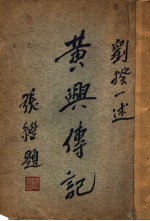 劉揆一述
黃興傳記
張繼題